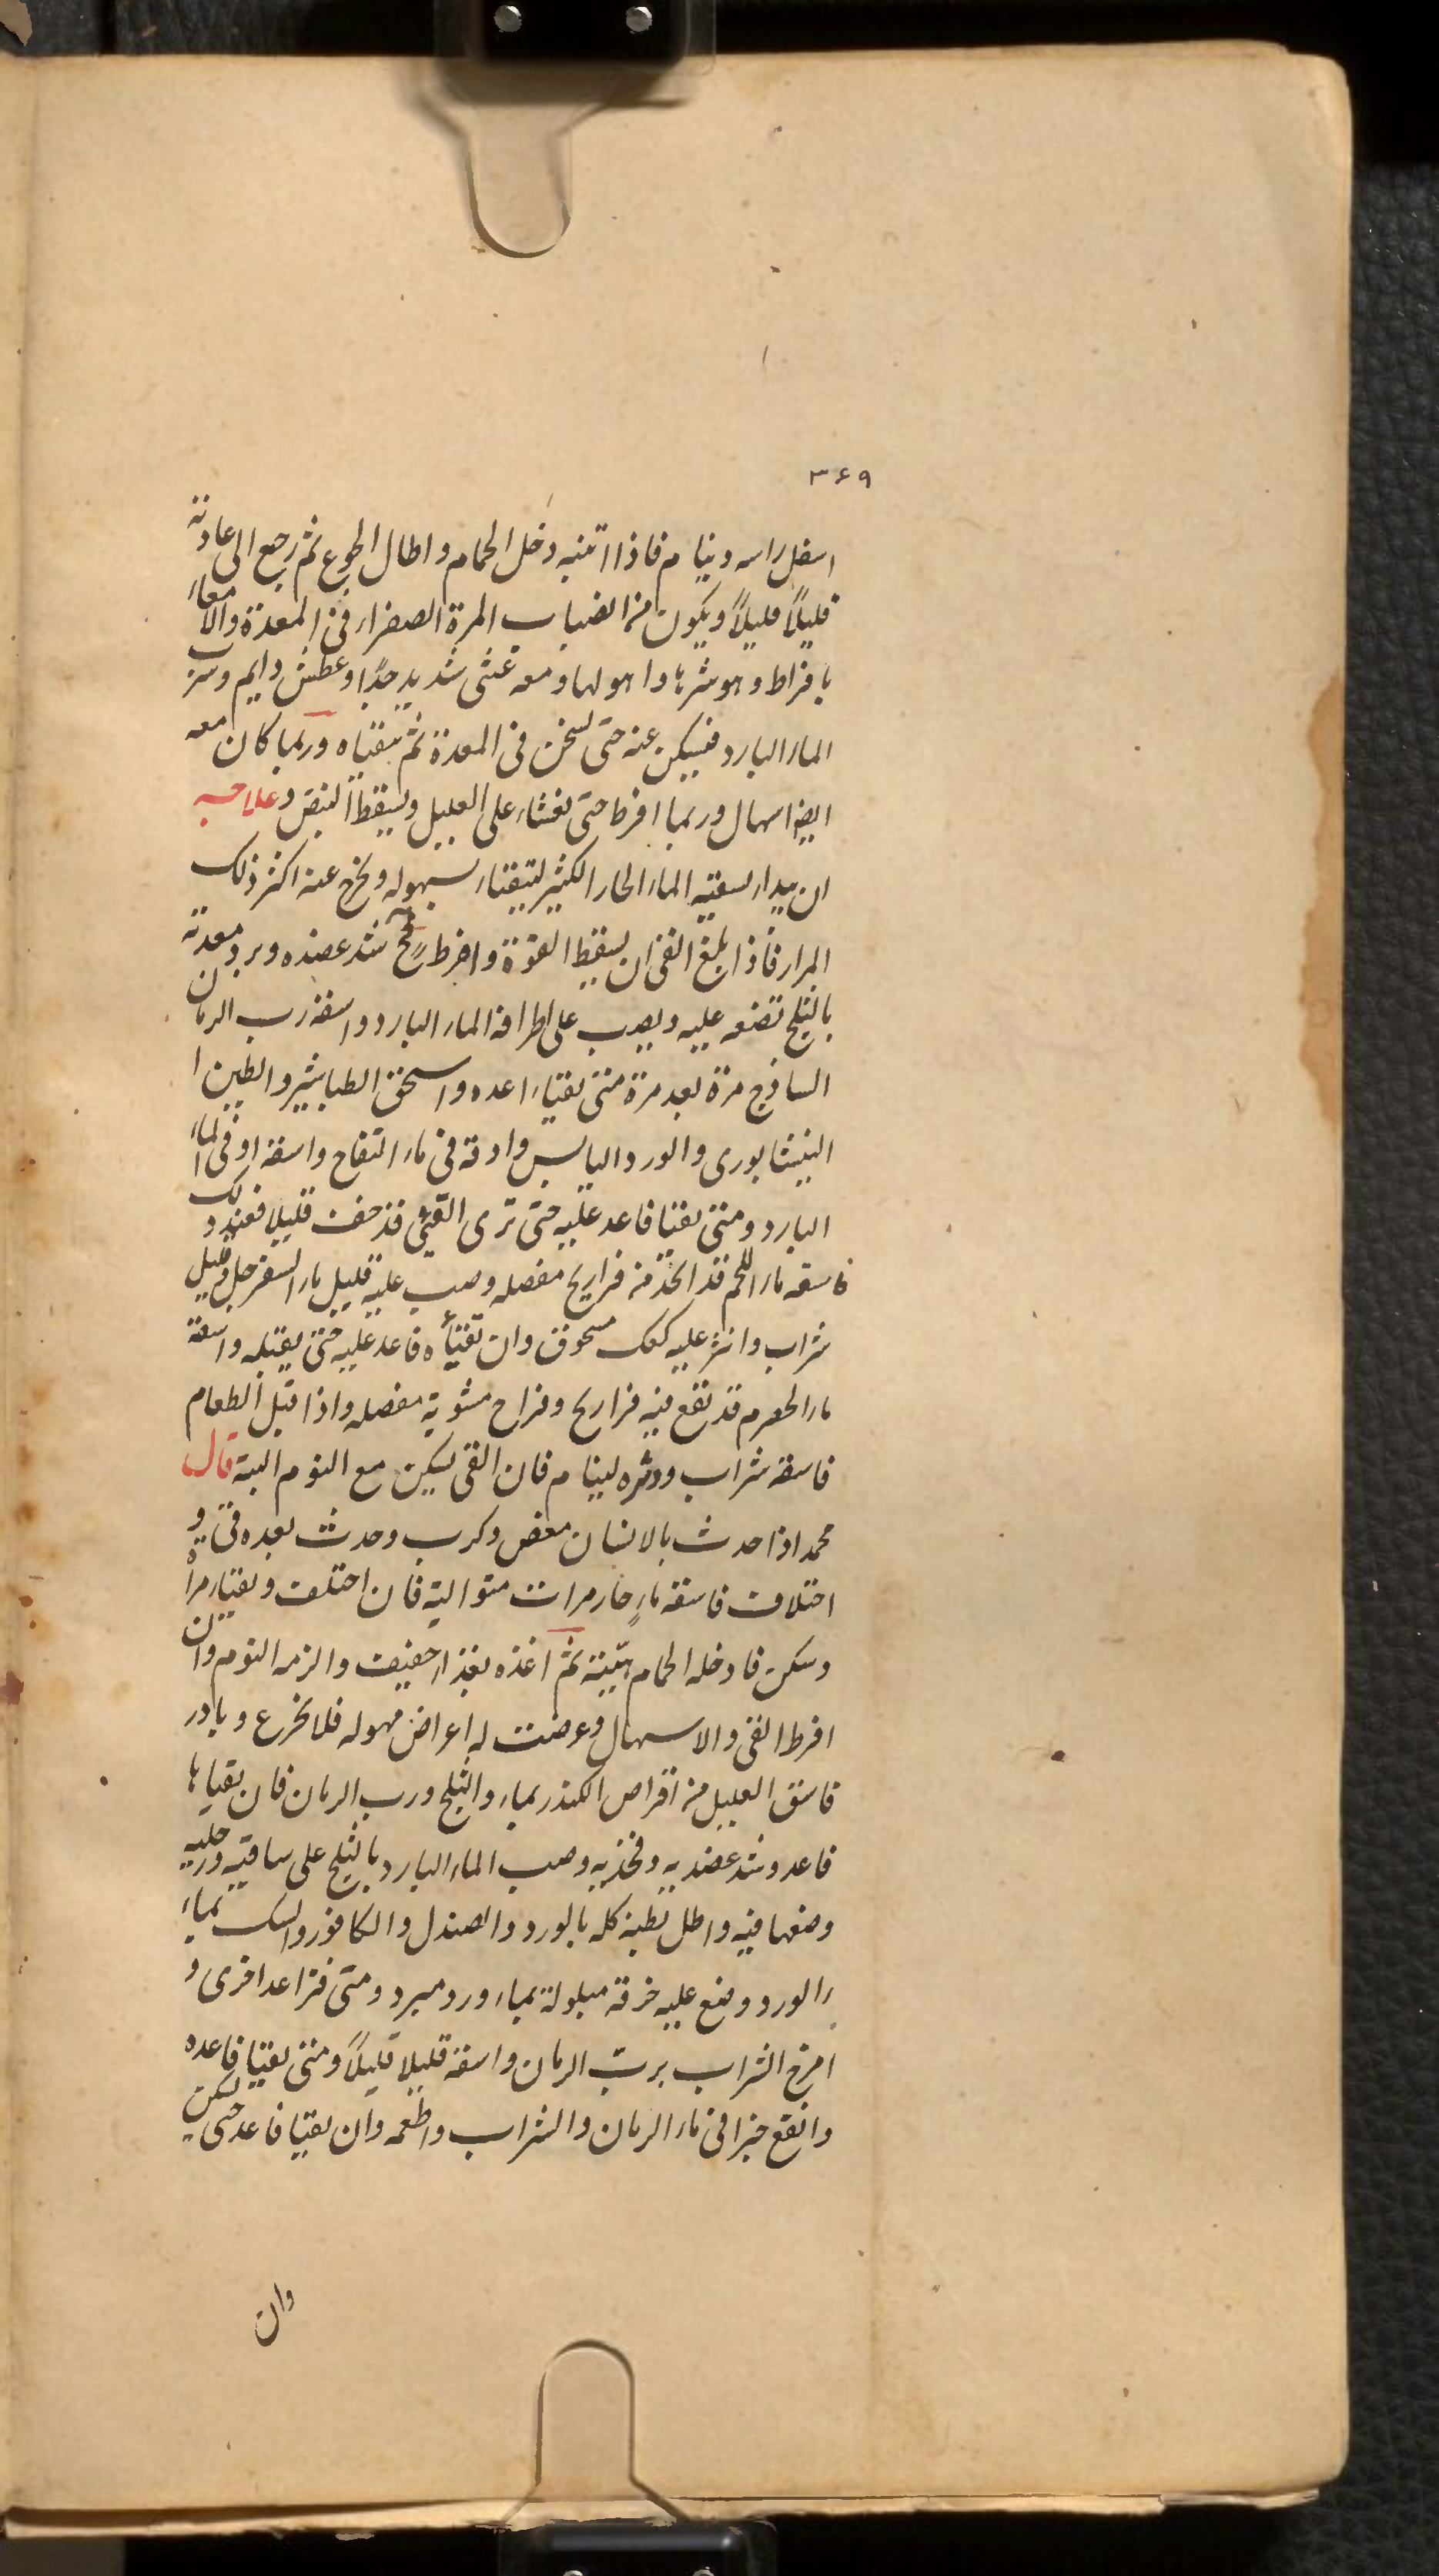 ۳۶۹
اسفل راسه وینام فاذا انتبه دخل الحمام واطال الجوع ثم رجع الی عادته
قلیلاً قلیلاً ویکون من انصباب المرة الصفراء فی المعدة والامعاء
بافراط وهو شرها واهولها ومعه غشی شدید جدًا وعطش دایم وشرب
الماء البارد فیسکن عنه حتی یسخن فی المعدة ثم یتقیاه وربما کان معه
ایضا اسهال وربما افرط حتی یغشاء علی العلیل ویسقط النبض وعلاجه
ان یبداء بسقیه الماء الحار الکثیر لیتقیاء بسهوله ویخرج عنه اکثر ذلک
المرار فاذا بلغ القی ان یسقط القوة وافرط فح شد عضده وبرد معدته
بالثلج تضعه علیه ویصب علی اطرافه الماء البارد واسقه رب الرمان
الساذج مرة بعد مرة متی یقیاء اعده واسحق الطباشیر والطین ا
النیشابوری والورد الیابس وادقه فی ماء التفاح واسقه او فی الماء
البارد ومتی یقیا فاعد علیه حتی تری القیء قد خف قلیلا فعند ذلک
فاسقه ماء اللحم قد اتخذ من فراریج مفصله وصب علیه قلیل ماء السفرجل وقلیل
شراب وانثر علیه کعک مسحوق وان تقیأه فاعد علیه حتی یقبله واسقه
ماء الحصرم قد نقع فیه فراریج وفراخ مشویة مفصله واذا قبل الطعام
فاسقه شراب ودثره لینام فان القی یسکن مع النوم البتة قال
محمد اذا حدث بالانسان مغص وکرب وحدث بعده قی و
اختلاف فاسقه ماءٍ حار مرات متوالیة فان اختلف ویقیاء مراة
وسکن فادخله الحمام هیّنة ثم اغذه بغذاء خفیف والزمه النوم وان
افرط القی والاسهال وعرضت له اعراض مهوله فلا تخرع وبادر
فاسق العلیل من اقراص الکندر بماء والثلج ورب الرمان فان یقیاها
فاعد وشد عضدیه وفخذیه وصب الماء البارد بالثلج علی ساقیه ورجلیه
وضعها فیه واطل بطنه کله بالورد والصندل والکافور والسک بماء
الورد وضع علیه خرقة مبلولة بماء ورد مبرد ومتی فتر اعد اخری و
امزج الشراب بربّ الرمان واسقه قلیلا قلیلاً ومتی یقیا فاعده
وانقع خبزا فی ماء الرمان والشراب واطعمه وان یقیا فاعد حتی یسکن
وان